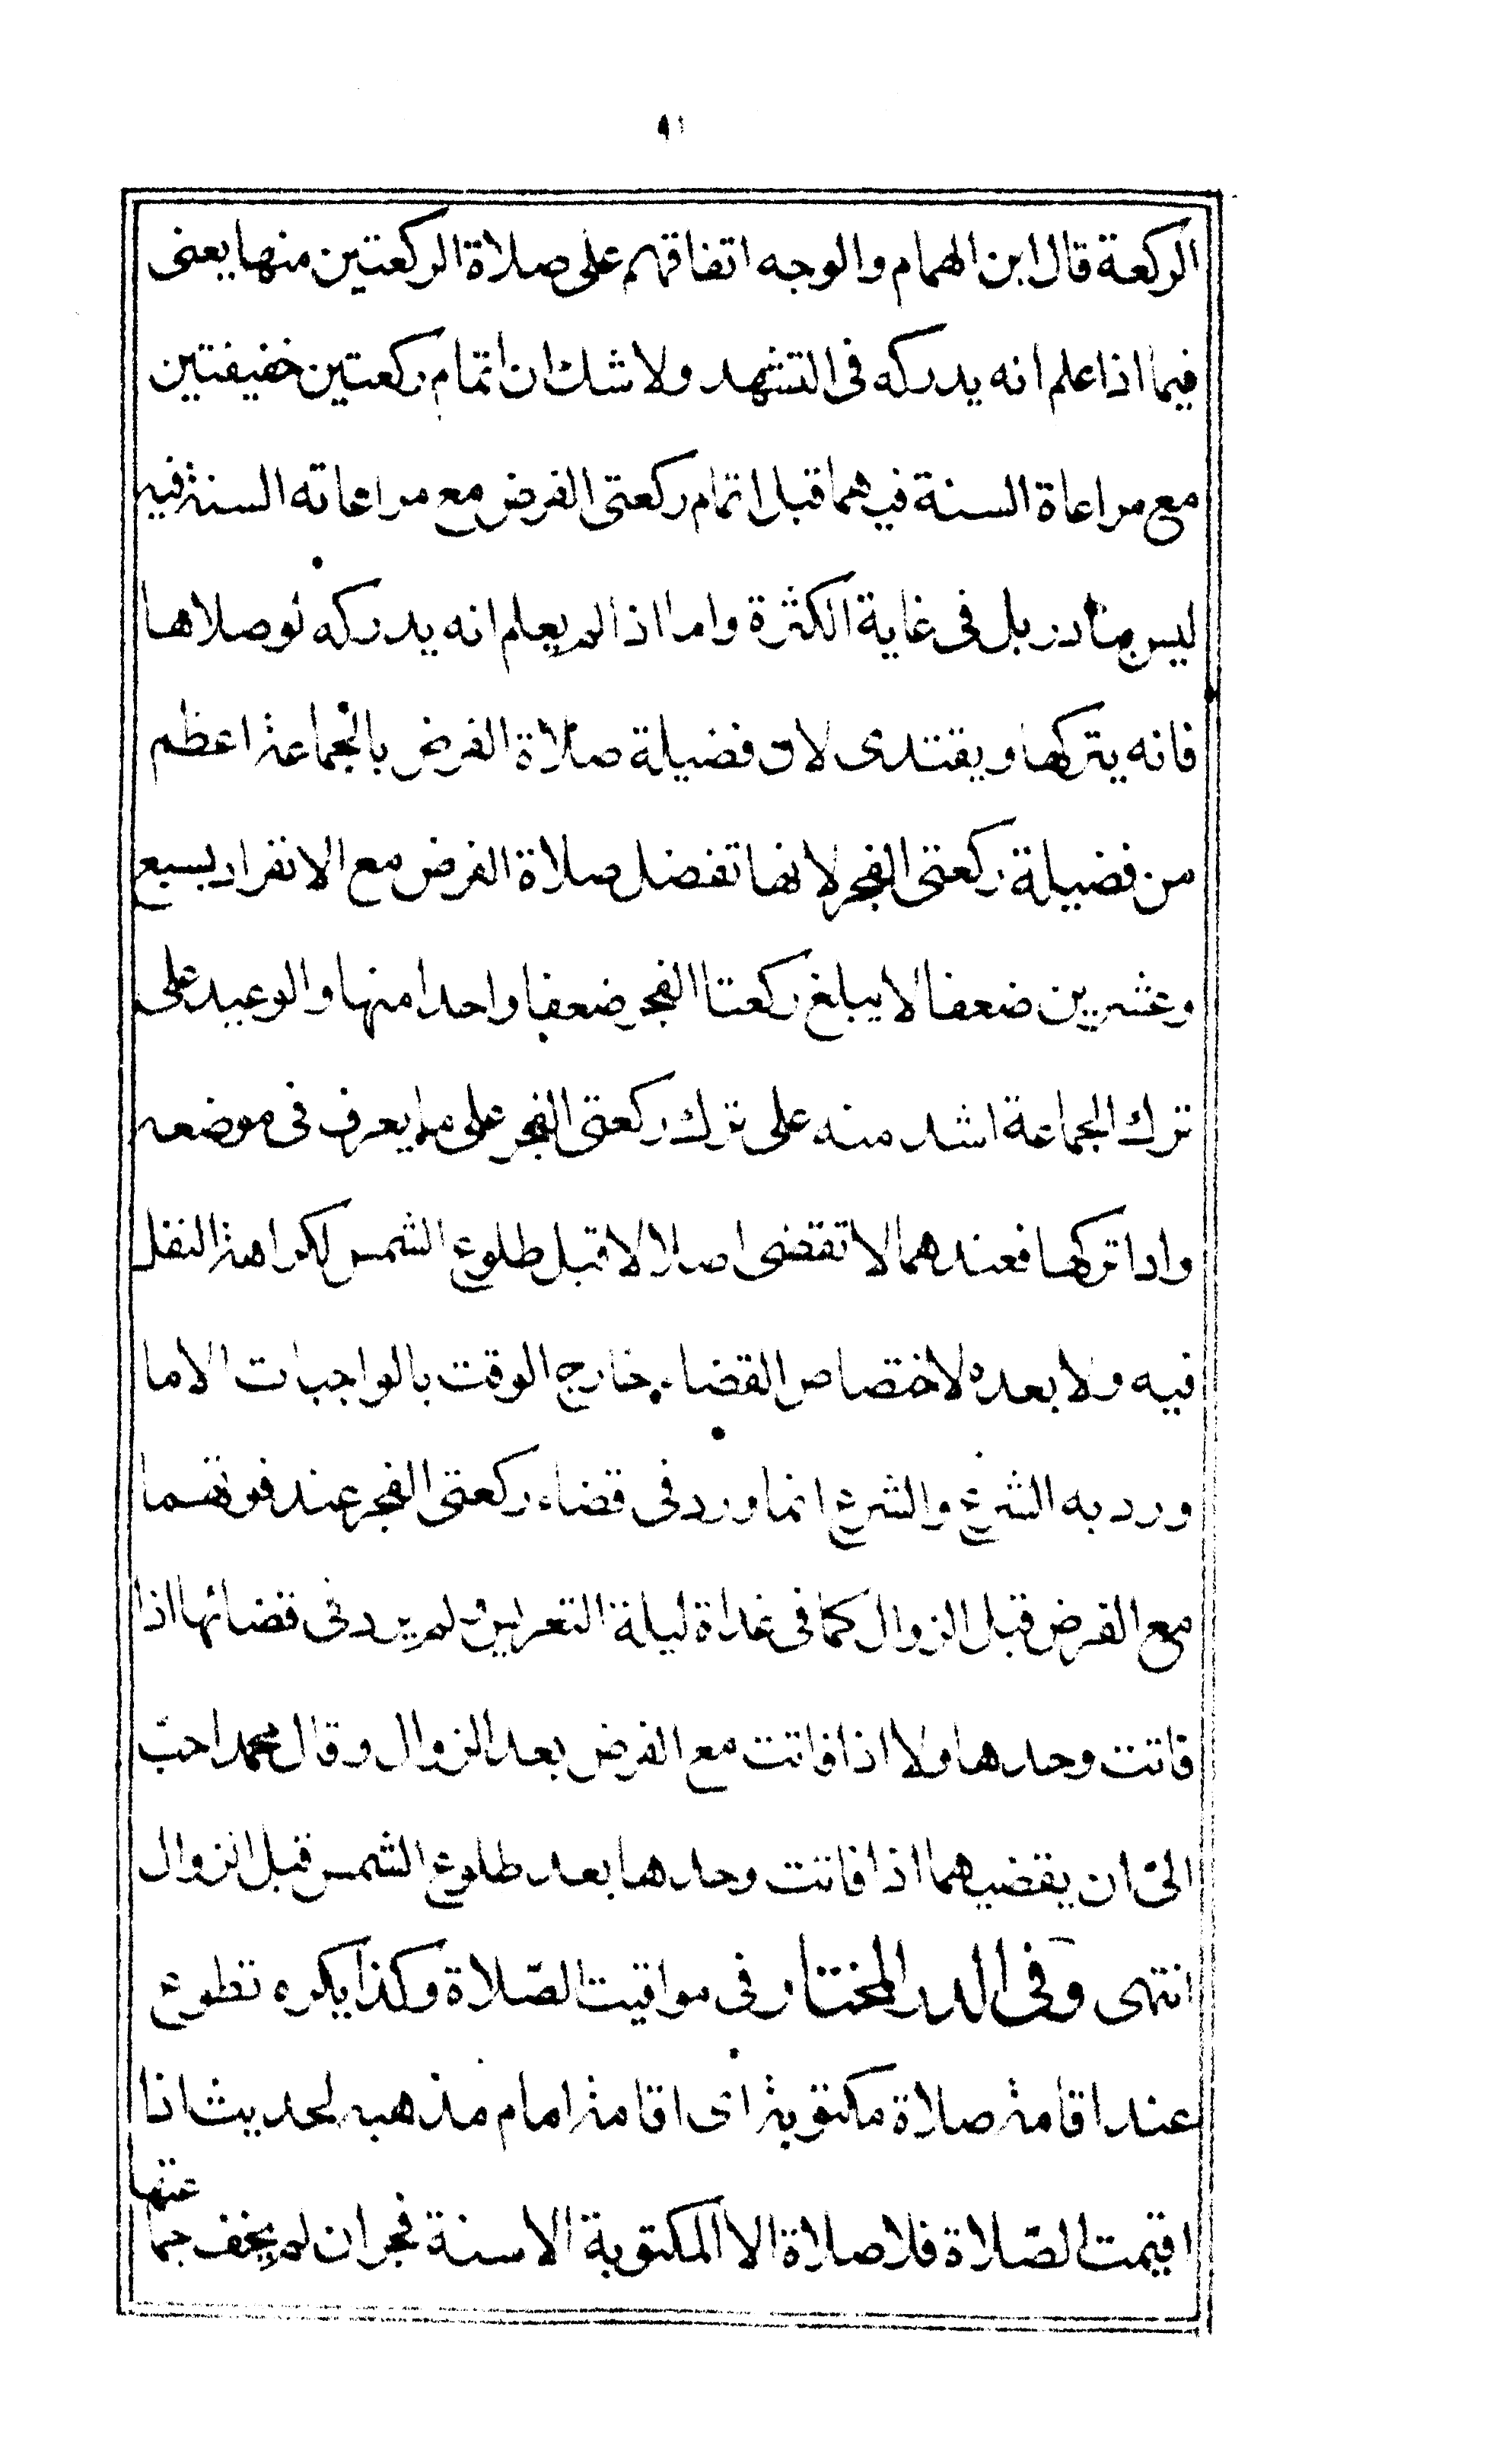 الركعة قال ابن الهمام والوجه اتفاقهم على صلاة الركعتين منها يعنى
فيما اذا علم انه يدركه فى التشهد ولا شك ان اتمام ركعتين خفيفتين
مع مراعاة السنة فيهما قبل اتمام ركعتى الفرض مع مراعاته السنة فيه
ليس بنادر بل فى غاية الكثرة واما اذا لم يعلم انه يدركه لو صلاها
فانه يتركها ويقتدى لان فضيلة صلاة الفرض بالجماعة اعظم
من فضيلة ركعتى الفجر لانها تفضل صلاة الفرض مع الانفراد بسبع
وعشرين ضعفا لا يبلغ ركعتا الفجر ضعفا واحدا منها والوعيد على
ترك الجماعة اشد منه على ترك ركعتى الفجر على ما يعرف فى موضعه
واذا تركها فعندهما لا تقضى اصلا لا قبل طلوع الشمس لكراهة النفل
فيه ولا بعده لاختصاص القضاء خارج الوقت بالواجبات الا ما
ورد به الشرع والشرع انما ورد فى قضاء ركعتى الفجر عند فوتهما
مع الفرض قبل الزوال كما فى غداة ليلة التعريس ولم يرد فى قضائها اذا
فاتت وحدها ولا اذا فاتت مع الفرض بعد الزوال وقال محمد احبّ
الىّ ان يقضيهما اذا فاتت وحدها بعد طلوع الشمس قبل الزوال
انتهى وفى الدر المختار فى مواقيت الصّلاة وكذا يكره تطوع
عند اقامة صلاة مكتوبة اى اقامة امام مذهبه لحديث اذا
اقيمت الصّلاة فلا صلاة الا المكتوبة الا سنة فجر ان لم يخف جما
عتها